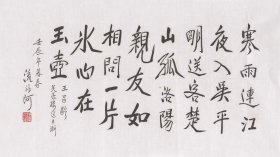 寒雨連江
夜入吴平
明送客楚
山孤洛陽
親友如
相問一片
冰心在
玉壺
王昌齡
芙蓉樓送辛漸
壬辰年暮春